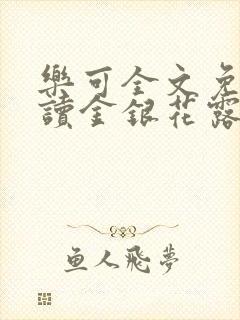 樂可全文免
讀金銀花露
鱼人飛夢